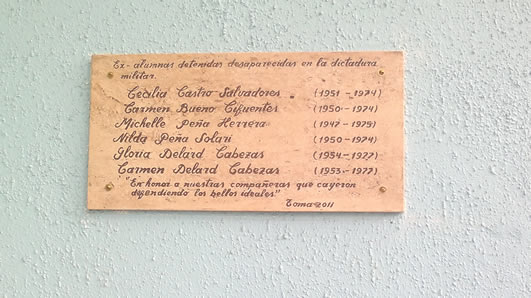 Ex-alumnas detenidas desaparecidas en la dictadura
militar.
Cecilia Castro Salvadores (1951-1974)
Carmen Bueno Cifuentes (1950-1974)
Michelle Peña Herrera (1947-1975)
Nilda Peña Solari (1950-1974)
Gloria Delard Cabezas (1954-1977)
Carmen Delard Cabezas (1953-1977)
"En honor a nuestras compañeras que cayeron
defendiendo los bellos ideales"
Toma 2011